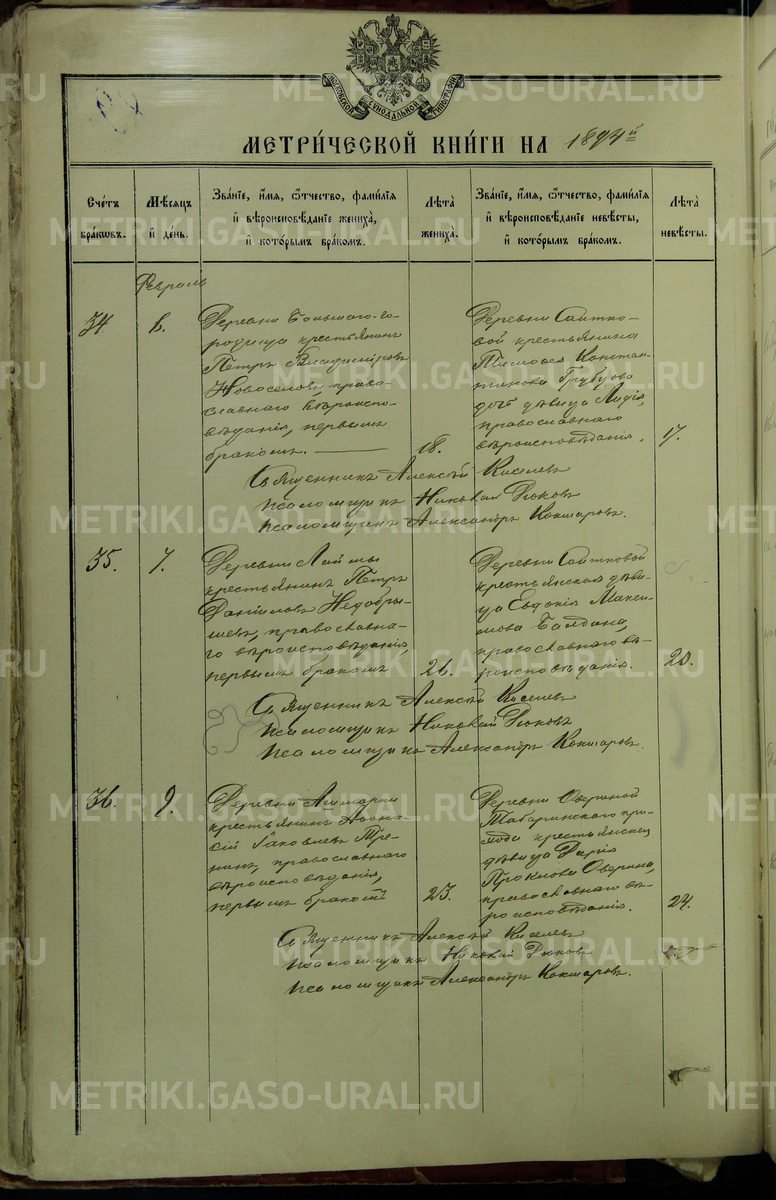 МОСКОВСКОЙ СѴНОДАЛЬНОЙ ТИПОГРАФІИ
МЕТРИ́ЧЕСКОЙ КНИ́ГИ НА 1894 й
Сче́тъ бра́кωвъ.
Мѣ́сяцъ и҆ де́нь.
Зва́нїе, и҆́мя, ѻ҆́тчество, фами́лїя и҆ вѣроисповѣ́данїе жениха̀, и҆ кото́рымъ бра́комъ.
Лѣ́та жениха̀.
Зва́нїе, и҆́мя, ѻ҆́тчество, фами́лїя и҆ вѣроисповѣ́данїе невѣ́сты, и҆ кото́рымъ бра́комъ.
Лѣ́та невѣ́сты.
Февраль
34
6.
Деревни Большаго-го-
родища крестьянинъ
Петръ Владиміровъ
Новоселовъ, право-
славнаго вѣроиспо-
вѣданія, первымъ
бракомъ.
18.
Деревни Сайтко-
вой крестьянина
Тимофея Констан-
тинова Трубцова
дочь дѣвица Лидія,
православнаго
вѣроисповѣданія.
17.
Священникъ Алексѣй Киселевъ
Псаломщикъ Николай Дюковъ
Псаломщикъ Александръ Кокшаровъ.
35.
7.
Деревни Лаймы
крестьянинъ Петръ
Даніиловъ Недобры-
шевъ, православна-
го вѣроисповѣданія,
первымъ бракомъ
26.
Деревни Сайтковой
крестьянская дѣви-
ца Евдокія Макси-
мова Балдина,
православнаго вѣ-
роисповѣданія.
20.
Священникъ Алексѣй Киселевъ
Псаломщикъ Николай Дюковъ
Псаломщикъ Александръ Кокшаровъ.
36.
9.
Деревни
крестьянинъ Афана-
сій Іаковлевъ Тре-
нинъ, православнаго
вѣроисповѣданія,
первымъ бракомъ
23.
Деревни Овериной
Татаринскаго при-
хода крестьянская
дѣвица Дарія
Прокlова Оверина,
православнаго вѣ-
роисповѣданія.
24.
Священникъ Алексѣй Киселевъ
Псаломщикъ Николай Дюковъ
Псаломщикъ Александръ Кокшаровъ.
METRIKI.GASO-URAL.RU